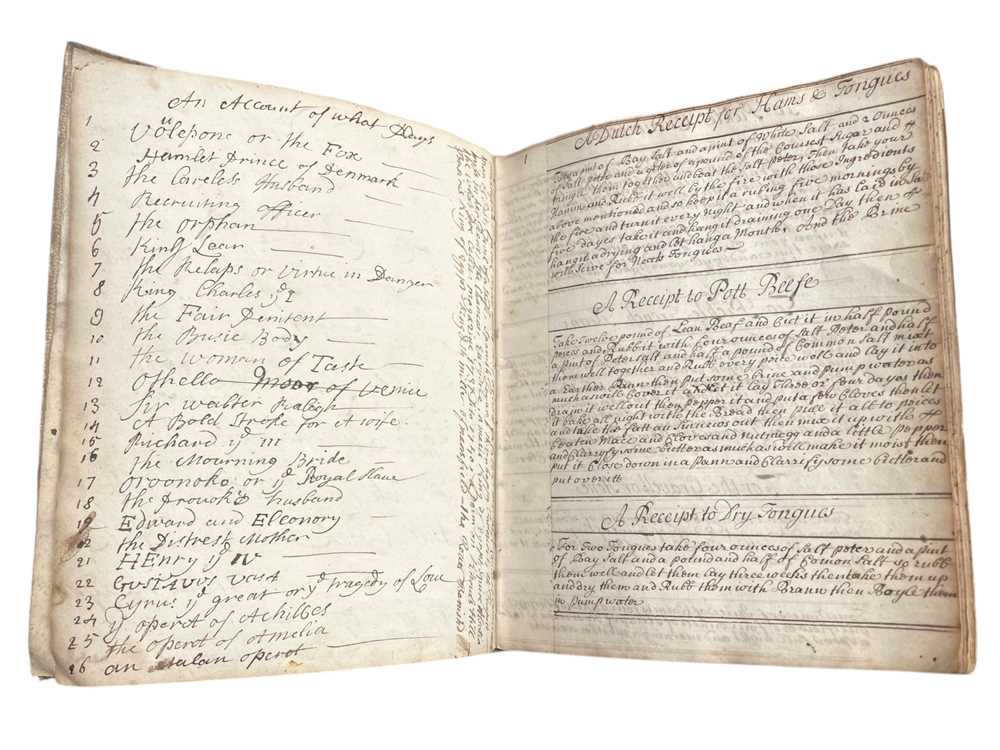 An Account of what Plays
1 Volepone or the Fox
2 Hamlet Prince of Denmark
3 the Careless Husband
4 Recruiting officer
5 the orphan
6 King Lear
7 the Relaps or virtue in Danger
8 King Charles ye I
9 the Fair Penitent
10 the Busie Body
11 the woman of Taste
12 Othello moor of Venice
13 Sir walter Raligh
14 A Bold Stroke for A wife
15 Richard ye III
16 the Mourning Bride
17 Oroonoko or ye Royal Slave
18 the provok'd husband
19 Edward and Eleonory
the Distrest Mother
21 HEnry ye IV
22 Gustavus vasa
23 Cyrus ye great or ye tragedy of Love
24 ye operot of Achilles
25 the operot of Amelia
26 an italan operot
1
A Dutch Receipt for Hams & Tongues
Take a pint of Bay Salt and a pint of White Salt and 2 Ounces
of salt petre and a of a pound of the Coursest Sugar and
them together and beat the salt peter Then take your
Hamm and Rubb it well by the fire with those Ingredients
above mentioned and so keep it a rubing five mornings by
the fire and turn it every night and when it has laid in
five dayes take it and hang it draining one Day then
hang it a drying and let hang a Month, and the Brine
will serve for Neats Tongues
A Receipt to Pott Beefe
Take Twelve pound of Lean Beaf and Cut it in half pound
peices and Rubb it with four ounces of Salt Peter and half
a pint of Peter Salt and half a pound of Common Salt mixt
them well together and Rubb every peice well and lay it into
a Earthen Pann then put some brine and Pump water as
much as will Cover it let it lay Three or four dayes then
draw it well out then pepper it and put a few Cloves then let
it bake all night with the Bread then pick it all to peices
and take the fatt and sinnews out then mix it up with
beaten Mace and Cloves and nutmegg and a little pepper
and Clarrify some butter as much as will make it moist then
put it Close down in a Pann and Clarrify some butter and
put over itt
A Receipt to Dry Tongues
For Two Tongues take four ounces of Salt peter and a pint
of Bay Salt and a pound and half of Comon Salt so rubb
them well and let them lay three weeks then take them up
and dry them and Rubb them with Brann then Boyle them
in Pump water